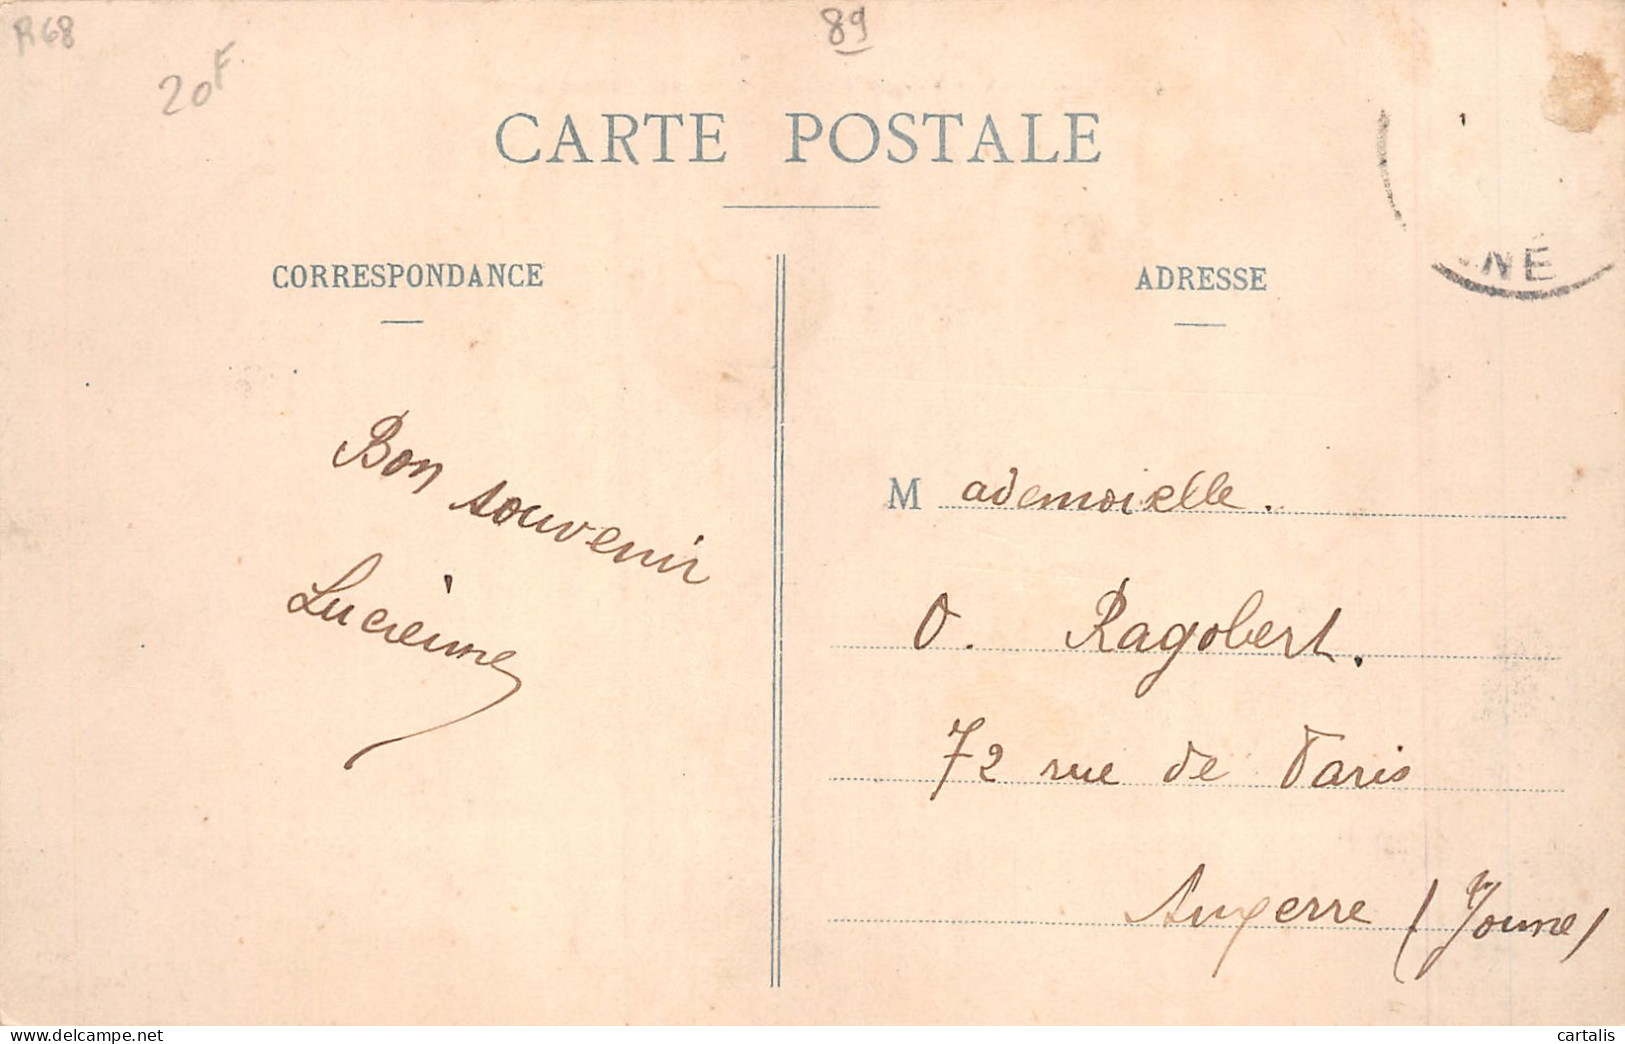 R68
20F
89
CARTE POSTALE
CORRESPONDANCE
ADRESSE
NE
Bon souvenir
Lucienne
Mademoiselle.
O. Ragobert.
72 rue de Paris
Auxerre (Yonne)
cartalis
delcampe.net